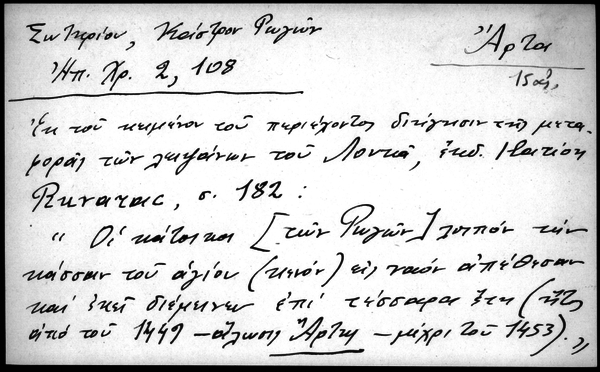 Σωτηρίου, Κάστρον Ρωγῶν
Ἠπ. Χρ. 2, 108
Ἄρτα
15 αἰ.
Ἐκ τοῦ κειμένου τοῦ περιέχοντος διήγησιν τῆς μετα-
φορᾶς τῶν λειψάνων τοῦ Λουκᾶ, ἐκδ.
σ. 182 :
" Οἱ κάτοικοι [τῶν Ρωγῶν] λοιπόν τήν
κάσσαν τοῦ ἁγίου (κενόν) εἰς ναόν ἀπέθεσαν
καί ἐκεῖ διέμεινεν ἐπί τέσσαρα ἔτη (ἤτοι
ἀπό τοῦ 1449 – ἅλωσις Ἄρτης – μέχρι τοῦ 1453)."